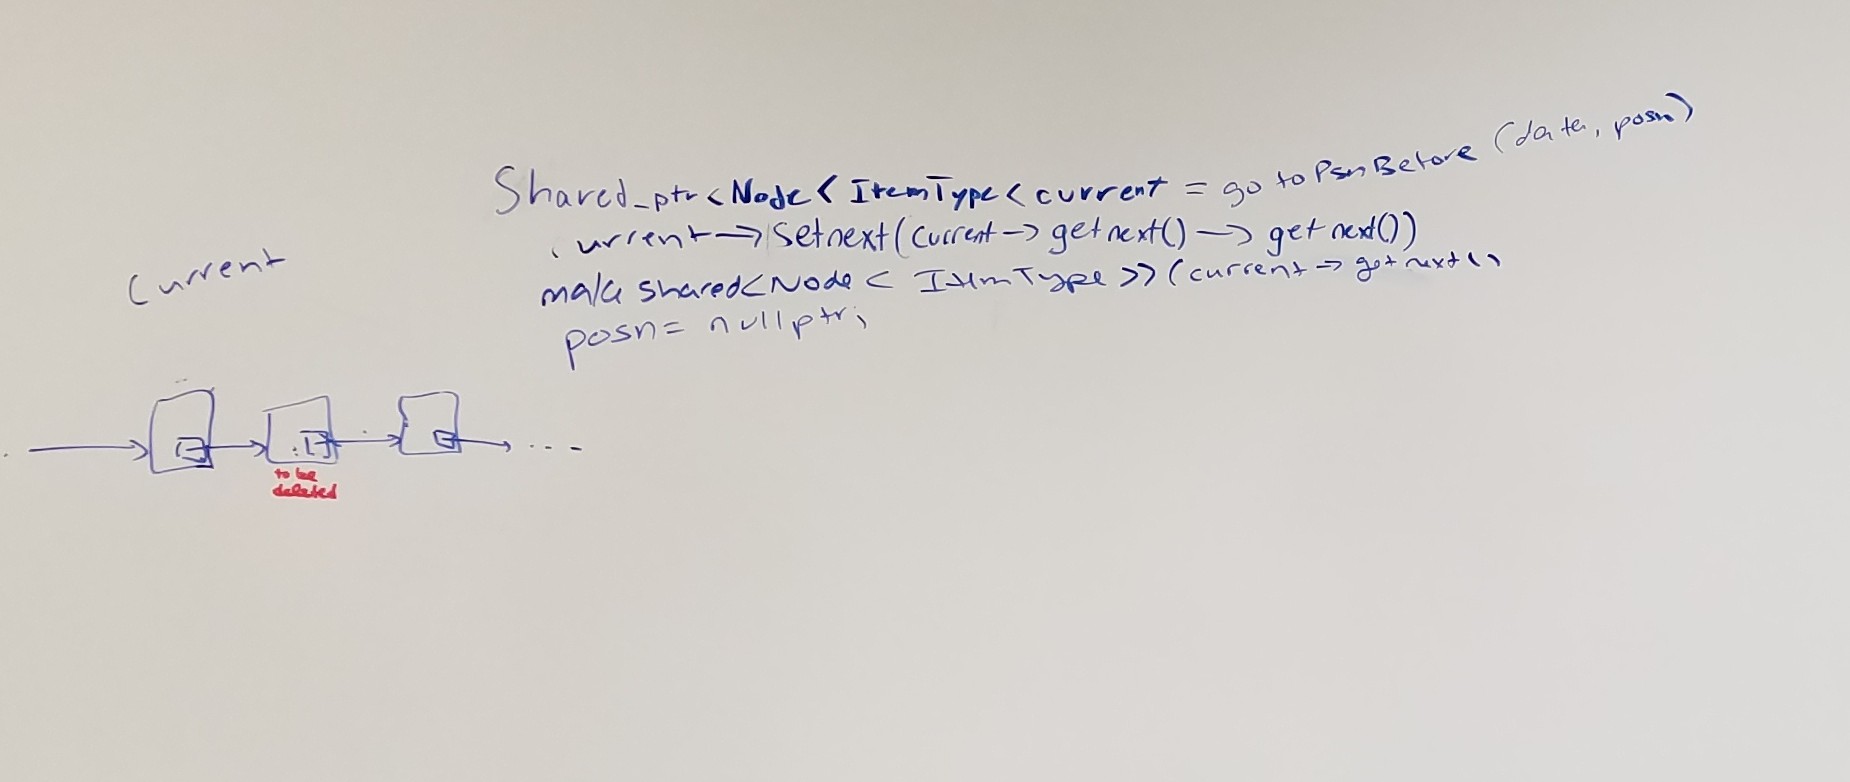 Shared_ptr<Node< ItemType< current = go to PsnBefore (data, posn)
urrent→Setnext(current→getnext()→getnext())
make shared<Node< ItemType>>(current→getnext()
posn= nullptr;
Current
to be
deleted
....